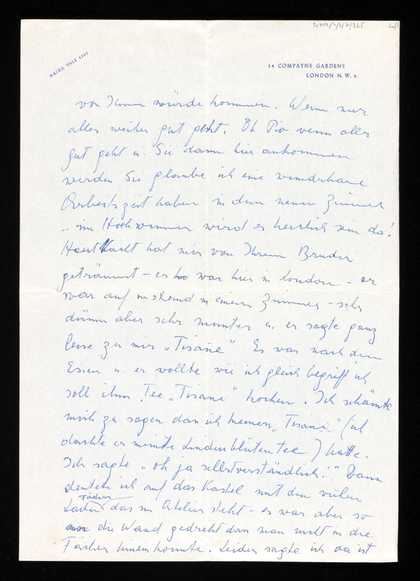 MAIDA VALE
14 COMPAYNE GARDENS
LONDON N.W. 6
von Ihnen würde kommen. Wenn nur
alles weiter gut geht. Oh Pio wenn alles
gut geht u. Sie dann hier ankommen
werden Sie glaube ich eine wunderbare
Arbeitszeit haben in dem neuen Zimmer
im Hochsommer wird es herrlich sein da!
Heut Nacht hat mir von Ihrem Bruder
geträumt – er war hier in London – er
war auf in einem Zimmer – sehr
dünn aber sehr munter u. er sagte ganz
leise zu mir „Tisane" Es war nach dem
Essen u. er wollte wie ich gleich begriff ich
soll ihm Tee „Tisane" kochen. Ich schämte
mich zu sagen dass ich keinen „Tisane" (ich
dachte er meinte Lindenblütentee) hatte.
Ich sagte „oh ja selbstverständlich!" Dann
deutete ich auf das Kastel mit den vielen
Laden Fächer das im Atelier steht – es war aber so
an die Wand gedreht dass man nicht in die
Fächer hinein konnte. Leider sagte ich da ist